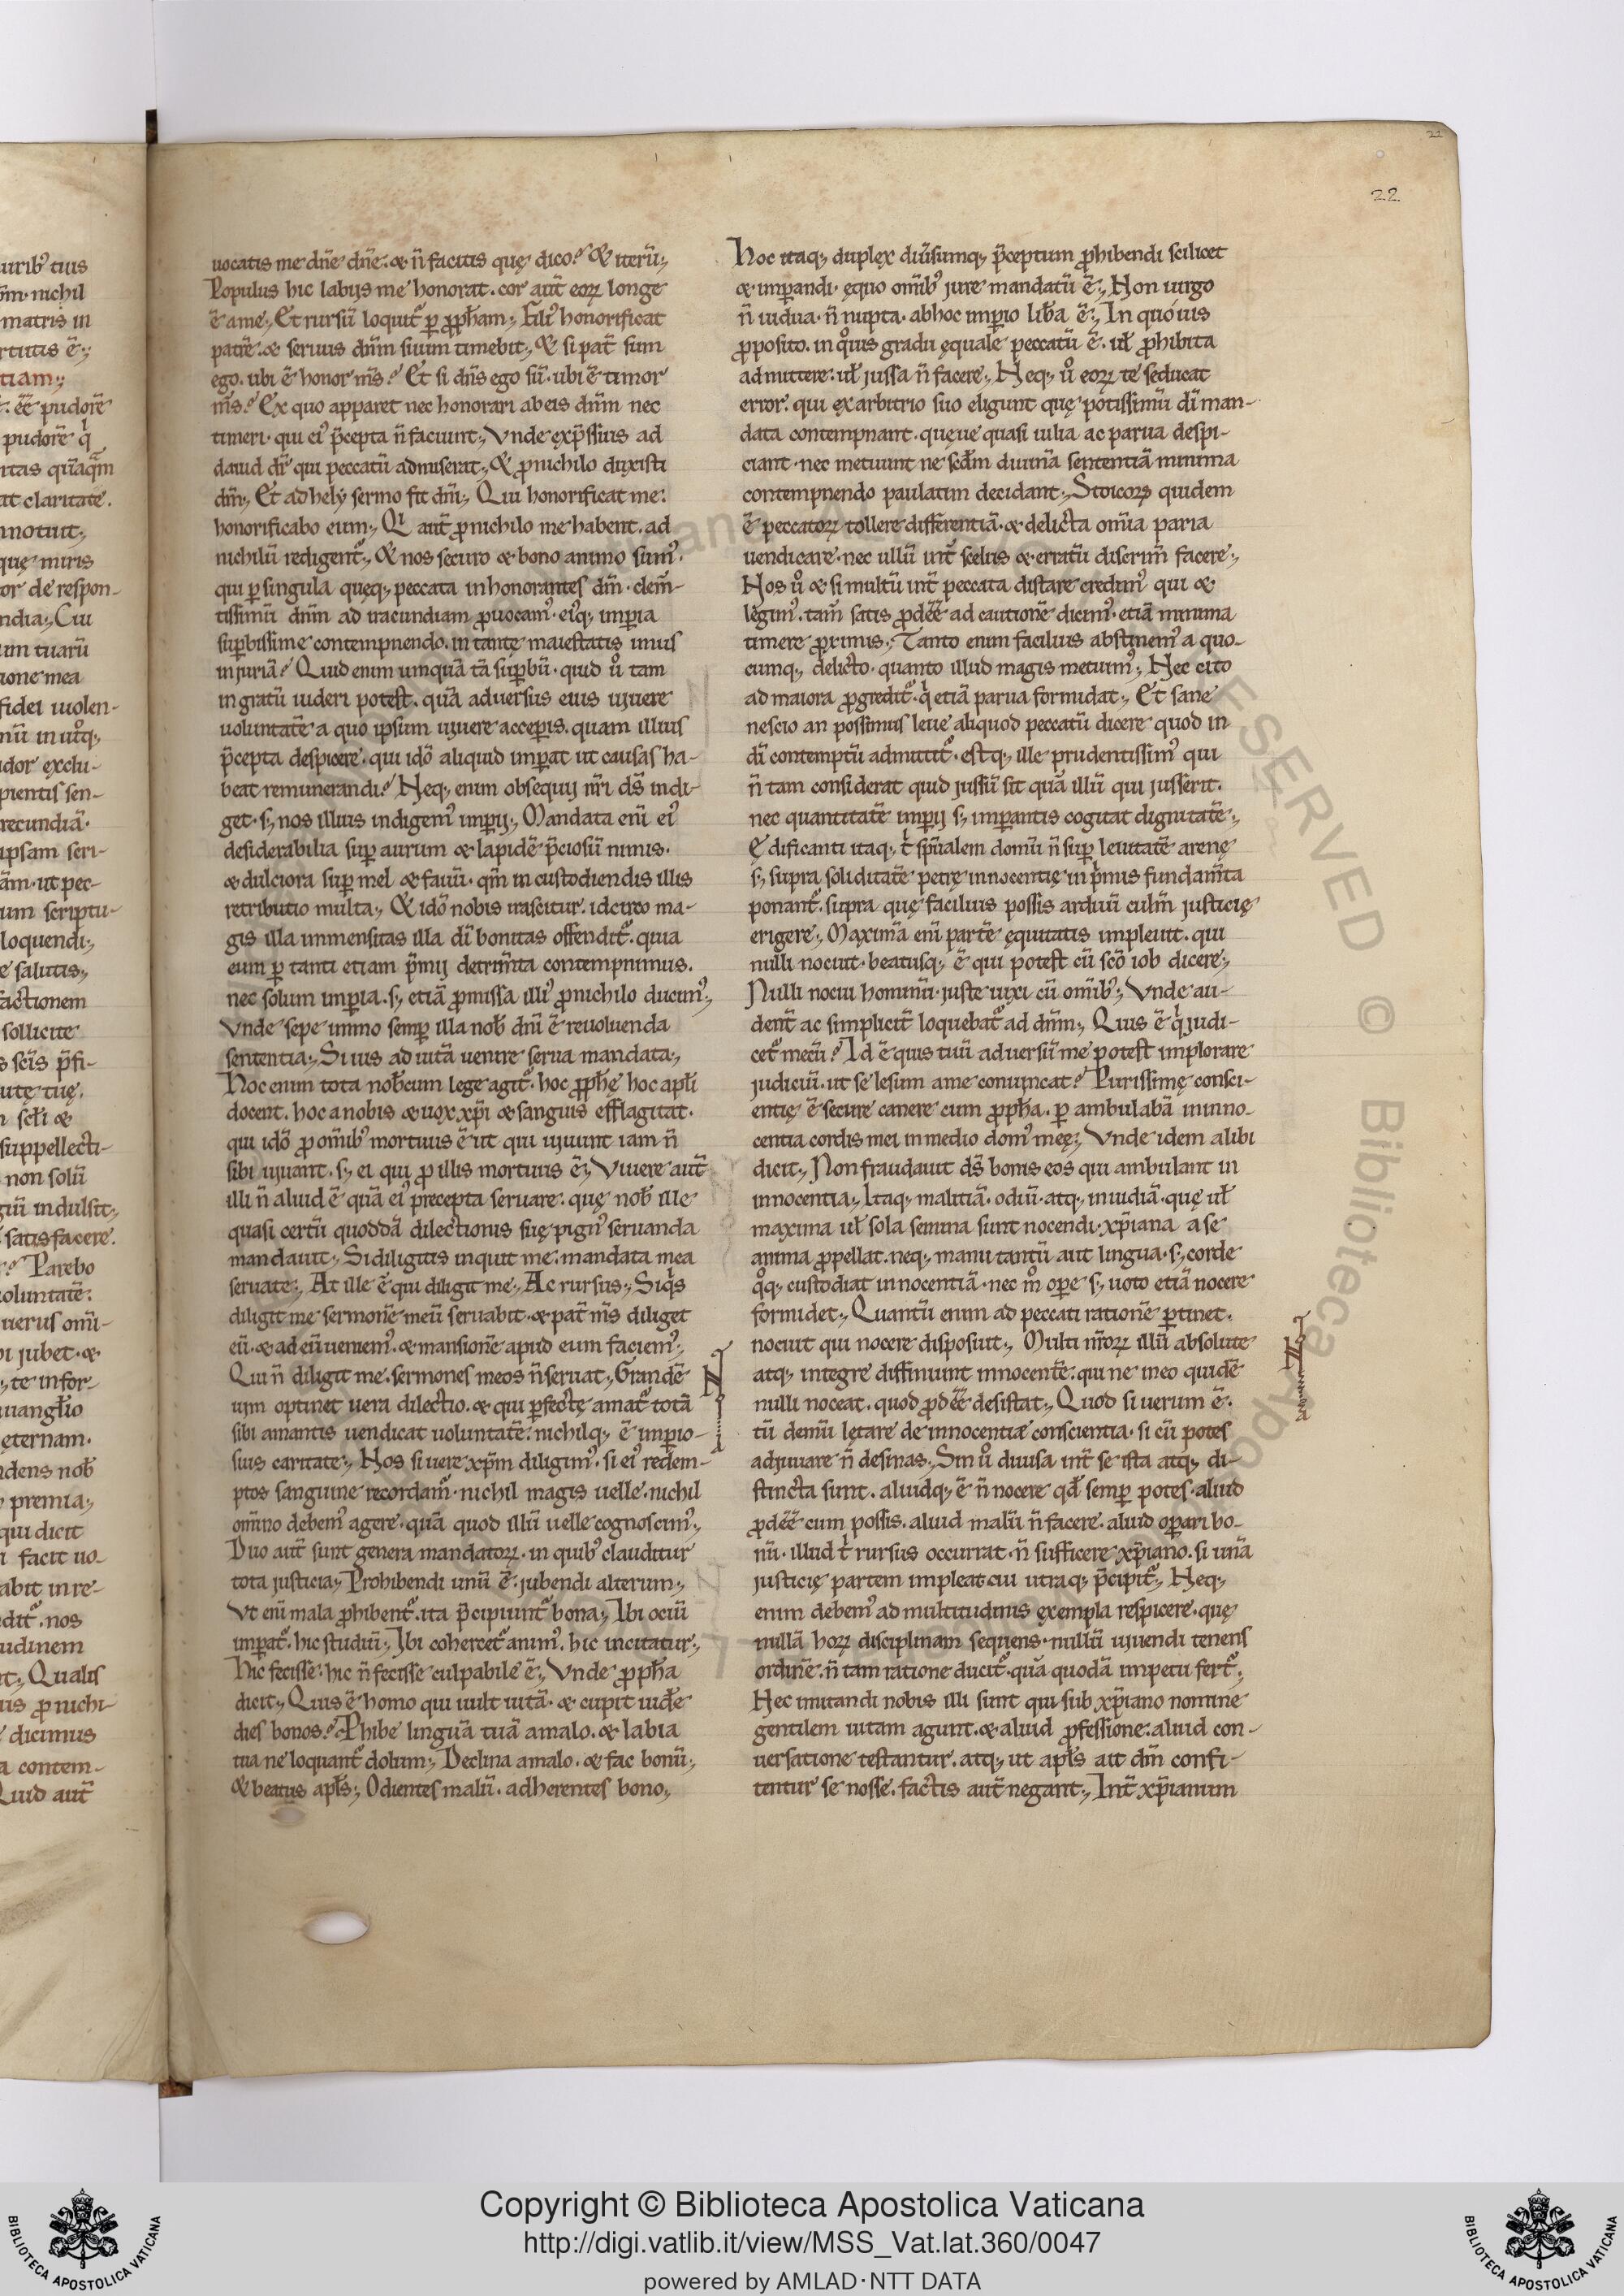 22
uocatis me dn̄e dn̄e. & n̄ facitis quę dico? & iterū;
Populus hic labijs me honorat. cor aut̄ eoꝝ longe
ē a me; Et rursū loquit᷑ ꝑ ꝓph̄am; Fili᷒ honorificat
patrē. & seruus dn̄m suum timebit; & si pat̄ sum
ego. ubi ē honor m̄s? Et si dn̄s ego sū. ubi ē timor
m̄s? Ex quo apparet nec honorari ab eis dn̄m nec
timeri. qui ei᷒ p̄cepta n̄ faciunt; Vnde exp̄ssius ad
dauid dr̄ qui peccatū admiserat; & ꝓ nichilo duxisti
dm̄; Et ad hely sermo fit dn̄i; Qui honorificat me:
honorificabo eum; Qi aut̄ ꝓ nichilo me habent. ad
nichilū redigent᷑; & nos securo & bono animo sum᷒.
qui ꝑ singula queq; peccata inhonorantes dm̄. clem̄-
tissimū dn̄m ad iracundiam ꝓuocam᷒. ei᷒q; imꝑia
suꝑbissime contempnendo. in tantę maiestatis imus
injuriā? Quid enim umquā tā suꝑbū. quid uͦ tam
ingratū uideri potest. quā aduersus eius uiuere
uoluntatē a quo ipsum uiuere acceꝑis. quam illius
p̄cepta despicere. qui idō aliquid imꝑat ut causas ha-
beat remunerandi? Neq; enim obsequij nr̄i ds̄ indi-
get. s; nos illius indigem᷒ imꝑij; Mandata eni̅ ei᷒
desiderabilia suꝑ aurum & lapidē p̄ciosū nimis.
& dulciora suꝑ mel & fauū. qm̄ in custodiendis illis
retributio multa; & idō nobis irascitur. idcirco ma-
gis illa immensitas illa dī bonitas offendit᷑. quia
eum ꝑ tanti etiam p̄mij detrim̄ta contempnimus.
nec solum imꝑia. s; etiā ꝓmissa illi᷒ ꝓ nichilo ducim᷒;
Vnde sepe immo semꝑ illa nob̄ dn̄i ē reuoluenda
sententia; Si uis ad uitā uenire serua mandata;
Hoc enim tota nob̄cum lege agit᷑. hoc ꝓph̄ę hoc apl̄i
docent. hoc a nobis & uox xp̄i & sanguis efflagitat.
qui idō ꝓ omīb᷒ mortuus ē ut qui uiuunt iam n̄
sibi uiuant. s; ei qui ꝓ illis mortuus ē; Viuere aut̄
illi n̄ aliud ē quā ei᷒ precepta seruare. quę nob̄ ille
quasi certū quoddā dilectionis suę pign᷒ seruanda
mandauit; Si diligitis inquit me: mandata mea
seruate; At ille ē qui diligit me; Ac rursus; Siqͥs
diligit me sermonē meū seruabit. & pat̄ m̄s diliget
eū. & ad eū ueniem᷒. & mansionē apud eum faciem᷒;
Qui n̄ diligit me. sermones meos n̄ seruat; Grandē
uim optinet uera dilectio. & qui ꝑfectę amat᷑ totā
sibi amantis uendicat uoluntatē. nichilq; ē imꝑio-
sius caritate; Nos si uere xp̄m diligim᷒. si ei᷒ redem-
ptos sanguine recordam᷑. nichil magis uelle. nichil
omīno debem᷒ agere. quā quod illū uelle cognoscim᷒;
Duo aut̄ sunt genera mandatoꝝ. in quib᷒ clauditur
tota justicia; Prohibendi unū ē. jubendi alterum;
Vt eni̅ mala ꝓhibent᷑. ita p̄cipiunt᷑ bona; Ibi ociū
imꝑat᷑. hic studiū; Ibi cohercet᷑ anim᷒. hic incitatur;
Hic fecisse: hic n̄ fecisse culpabile ē; Vnde ꝓph̄a
dicit; Quis ē homo qui uult uitā. & cupit uidē̄
dies bonos? Phibe linguā tuā a malo. & labia
tua ne loquant᷑ dolum; Declina a malo. & fac bonū;
& beatus apl̄s; Odientes malū. adherentes bono;
Hoc itaq; duplex diuͥsumq; p̄ceptum ꝓhibendi scilicet
& imꝑandi. ęquo omīb᷒ jure mandatū ē; Non uirgo
n̄ uidua. n̄ nupta. ab hoc imꝑio lib̄a ē; In quouis
ꝓposito. in qͦuis gradu ęquale peccatū ē. ul̄ ꝓhibita
admittere. ul̄ jussa n̄ facere; Neq; uͦ eoꝝ te seducat
error. qui ex arbitrio suo eligunt quę potissimū dī man-
data contempnant. queue quasi uilia ac parua despi-
ciant. nec metuunt ne scd̄m diuinā sententiā minima
contempnendo paulatim decidant; Stoicoꝝ quidem
ē peccatoꝝ tollere differentiā. & delicta omīa paria
uendicare. nec ullū int᷑ scelus & erratū discrim̄ facere;
Nos uͦ & si multū int̄ peccata distare credim᷒ qui &
legim᷒. tam̄ satis ꝓdeē̄ ad cautionē dicim᷒. etiā minima
timere ꝓ primis; Tanto enim facilius abstinem᷒ a quo-
cumq; delicto. quanto illud magis metuim᷒; Nec cito
ad maiora ꝓgredit᷑. qͥ etiā parua formidat; Et sane
nescio an possimus leue aliquod peccatū dicere quod in
dī contemptū admittit᷑. estq; ille prudentissim᷒ qui
n̄ tam considerat quid jussū sit quā illū qui jusserit.
nec quantitatē imꝑij s; imꝑantis cogitat dignitatē;
Ędificanti itaq; tͥ spūalem domū n̄ suꝑ leuitatē arenę
s; supra soliditatē petrę innocentię in p̄mis fundam̄ta
ponant᷑. supra quę facilius possis arduū culm̄ justicię
erigere; Maximā eni̅ partē ęquitatis impleuit. qui
nulli nocuit. beatusq; ē qui potest cū scō iob dicere;
Nulli nocui hominū. juste uixi cū omīb᷒; Vnde au-
dent̄ ac simplicit̄ loquebat᷑ ad dn̄m; Quis ē qͥ judi-
cet᷑ mecū? Id ē quis tuū aduersū me potest implorare
judiciū. ut se lesum a me conuincat? Purissimę consci-
entię ē secure canere cum ꝓph̄a. ꝑambulabā in inno-
centia cordis mei in medio dom᷒ meę; Vnde idem alibi
dicit; Non fraudauit ds̄ bonis eos qui ambulant in
innocentia; Itaq; malitiā. odiū. atq; inuidiā. quę ul̄
maxima ul̄ sola semina sunt nocendi. xp̄iana a se
anima ꝓpellat. neq; manu tantū aut lingua. s; corde
qͦq; custodiat innocentiā. nec mͦ oꝑe s; uoto etiā nocere
formidet; Quantū enim ad peccati rationē ꝑtinet.
nocuit qui nocere disposuit; Multi nr̄oꝝ illū absolute
atq; integre diffiniunt innocentē. qui ne in eo quidē
nulli noceat. quod ꝓdeē̄ desistat; Quod si uerum ē.
tū demū lętare de innocentiæ conscientia. si cū potes
adjuuare n̄ desinas; Sin uͦ diuisa int̄ se ista atq; di-
stincta sunt. aliudq; ē n̄ nocere qd̄ semꝑ potes. aliud
ꝓdeē̄ cum possis. aliud malū n̄ facere. aliud oꝑari bo-
nū. illud tͥ rursus occurrat. n̄ sufficere xp̄iano. si unā
justicię partem impleat cui utraq; p̄cipit᷑; Neq;
enim debem᷒ ad multitudinis exempla respicere. quę
nullā hoꝝ disciplinam sequens. nullū uiuendi tenens
ordinē. n̄ tam ratione ducit᷑. quā quodā impetu fert᷑;
Nec imitandi nobis illi sunt qui sub xp̄iano nomine
gentilem uitam agunt. & aliud ꝓfessione: aliud con-
uersatione testantur. atq; ut apl̄s ait dm̄ confi-
tentur se nosse. factis aut̄ negant; Int̄ xp̄ianum
Copyright © Biblioteca Apostolica Vaticana
http://digi.vatlib.it/view/MSS_Vat.lat.360/0047
powered by AMLAD·NTT DATA
BIBLIOTECA APOSTOLICA VATICANA
BIBLIOTECA APOSTOLICA VATICANA